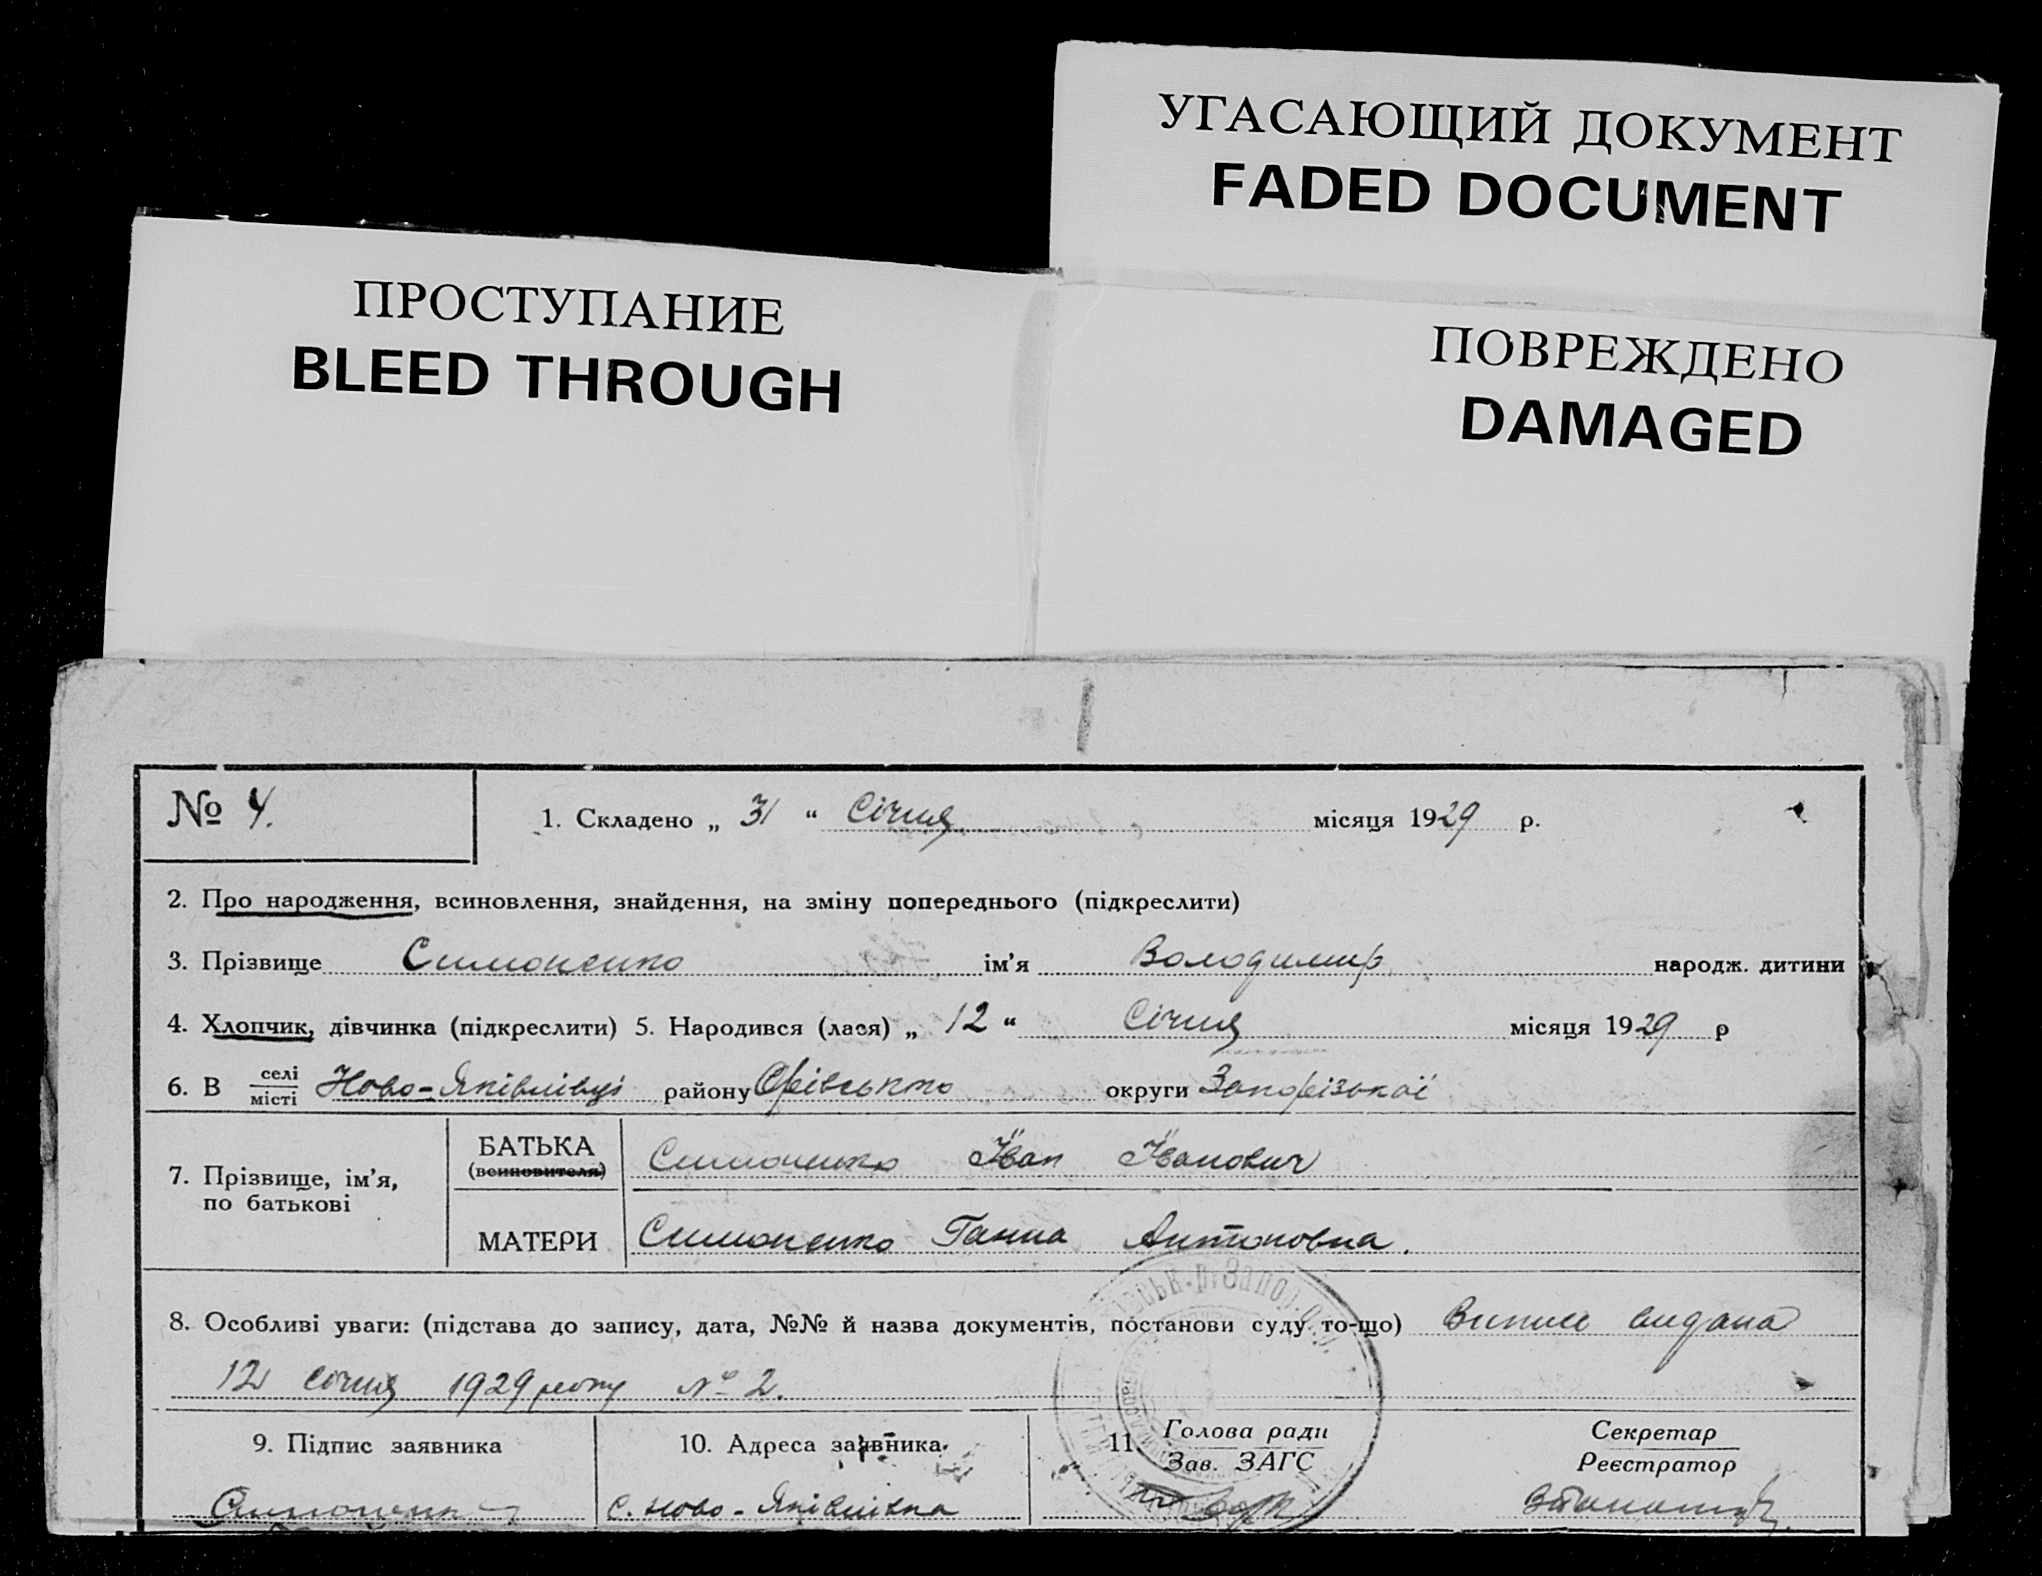 УГАСАЮЩИЙ ДОКУМЕНТ
FADED DOCUMENT
ПРОСТУПАНИЕ
BLEED THROUGH
ПОВРЕЖДЕНО
DAMAGED
№ 4.
1. Складено „ 31 “ Січня місяця 1929 р.
2. Про народження, всиновлення, знайдення, на зміну попереднього (підкреслити)
3. Прізвище Симоненко ім’я Володимир народж. дитини
4. Хлопчик, дівчинка (підкреслити) 5. Народився (лася) „ 12 “ Січня місяця 1929 р
6. В селі місті Ново-Яківлівці району Оріського округи Запорізької
7. Прізвище, ім’я, по батькові
БАТЬКА (всиновителя) Симоненко Іван Іванович
МАТЕРИ Симоненко Ганна Антоновна.
8. Особливі уваги: (підстава до запису, дата, №№ й назва документів, постанови суду то-що) Випис видана
12 січня 1929 року № 2.
9. Підпис заявника
10. Адреса заявника
11. Голова ради
Зав. ЗАГС
Секретар
Реєстратор
Симоненко
с. Ново-Яківлівка